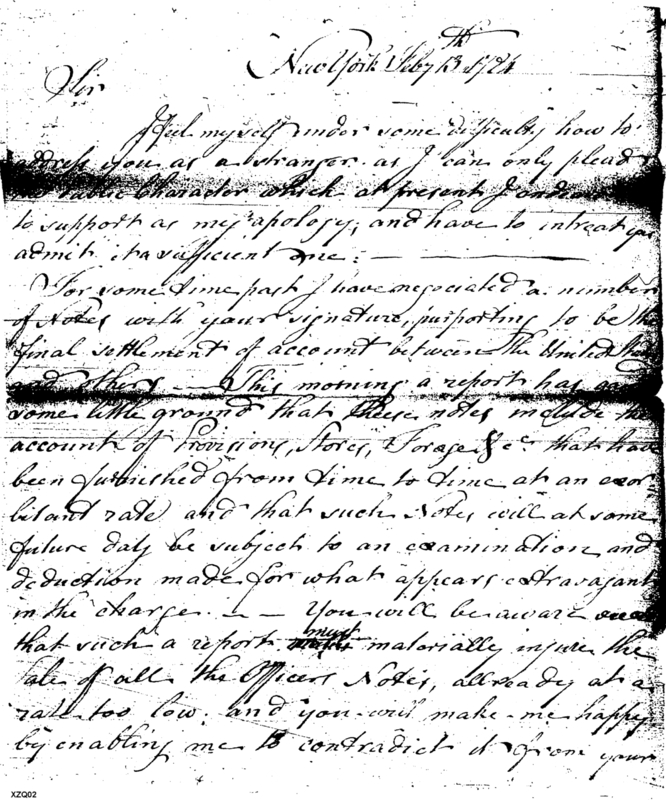 New York Feby 13th 1784
Sir
I feel myself under some difficulty how to
address you as a stranger as I can only plead
public Character which at present I
to support as my apology, and have to intreat you
admit it a sufficient one: —
For some time past I have negociated a number
of Notes with your signature, purporting to be the
final settlement of account between The United States
and others — This morning a report has
some little ground that these notes include the
account of Provisions, Stores, Forage &c that have
been furnished from time to time at an exor
bitant rate and that such Notes will at some
future day be subject to an examination and
deduction made for what appears extravagant
in the charge. — — You will be aware
that such a report must materially injure the
Sale of all the Officers Notes, allready at a
rate too low, and you will make me happy
by enabling me to contradict it from your
XZQ02